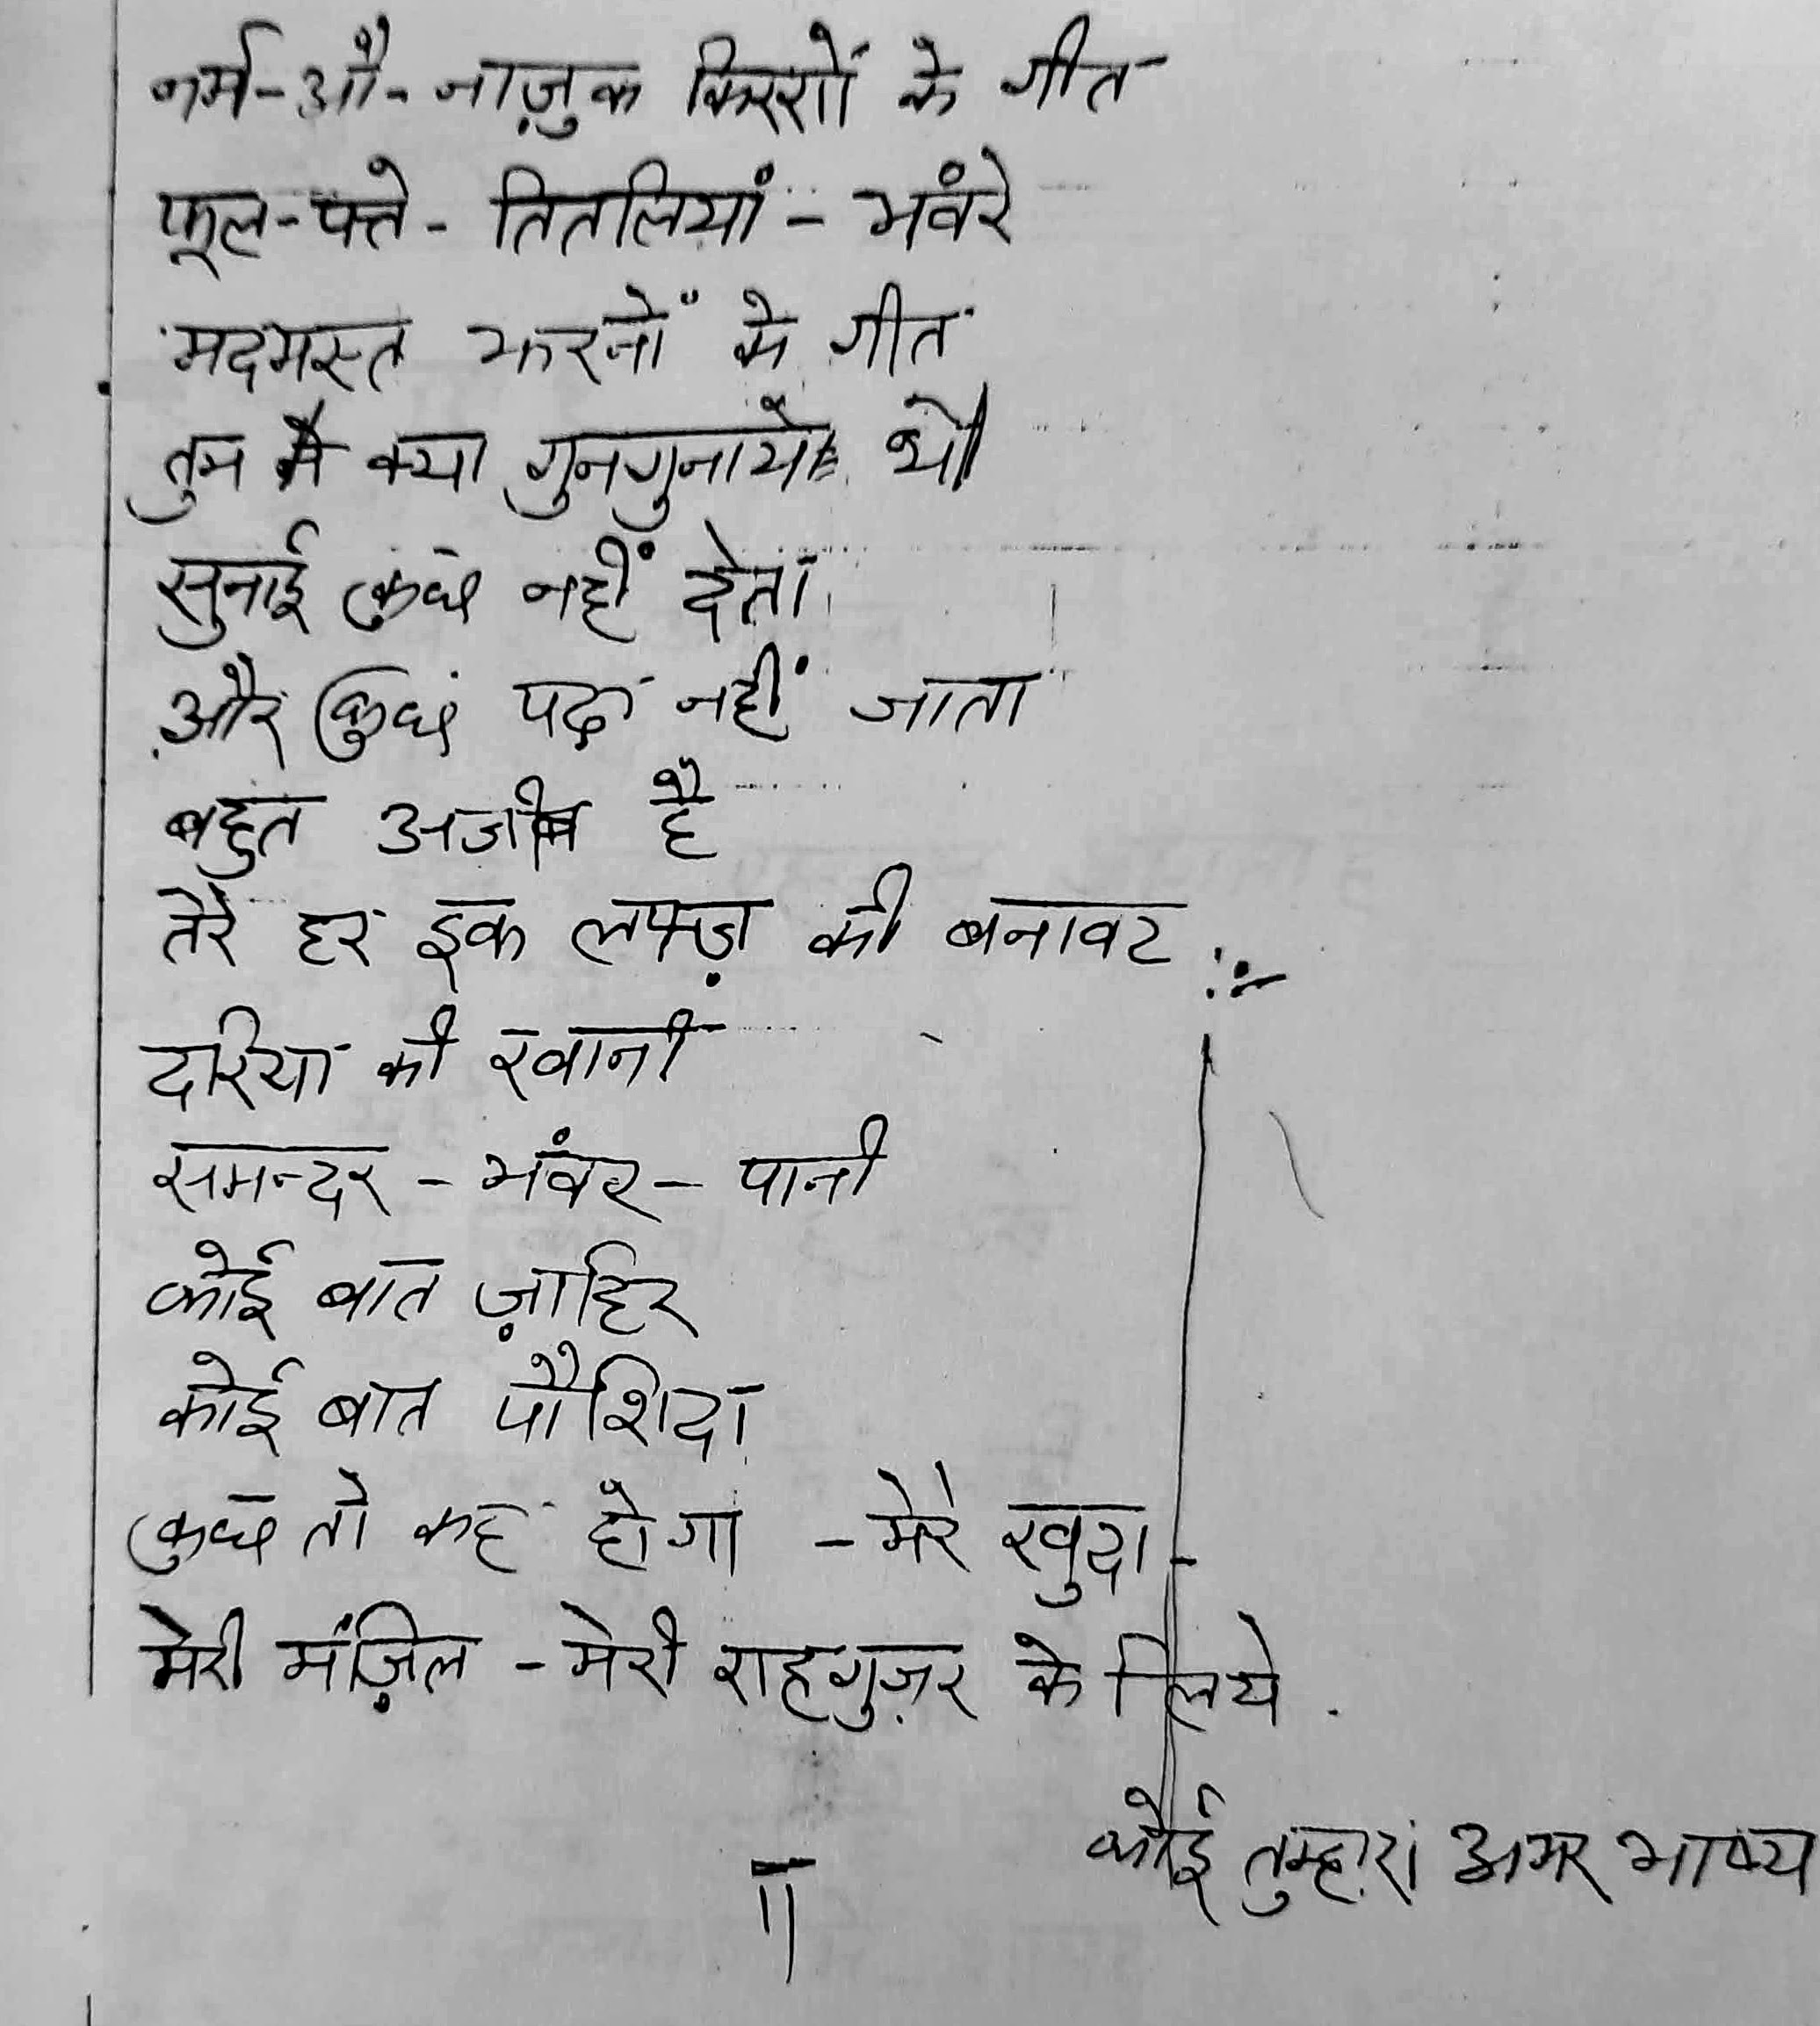 नर्म-औ-नाज़ुक किरणों के गीत
फूल-पत्ते-तितलियां-भवंरे
मदमस्त झरनों के गीत
तुम ने क्या गुनगुनाये थे
सुनाई कुछ नहीं देता
और कुछ पढ़ा नहीं जाता
बहुत अजीब है
तेरे हर इक लफ्ज़ की बनावट
दरिया की रवानी
समन्दर-भंवर-पानी
कोई बात ज़ाहिर
कोई बात पौशिदा
कुछ तो कह होगा -मेरे खुदा-
मेरी मंज़िल -मेरी राहगुज़र के लिये.
कोई तुम्हारा अमर भाष्य
II